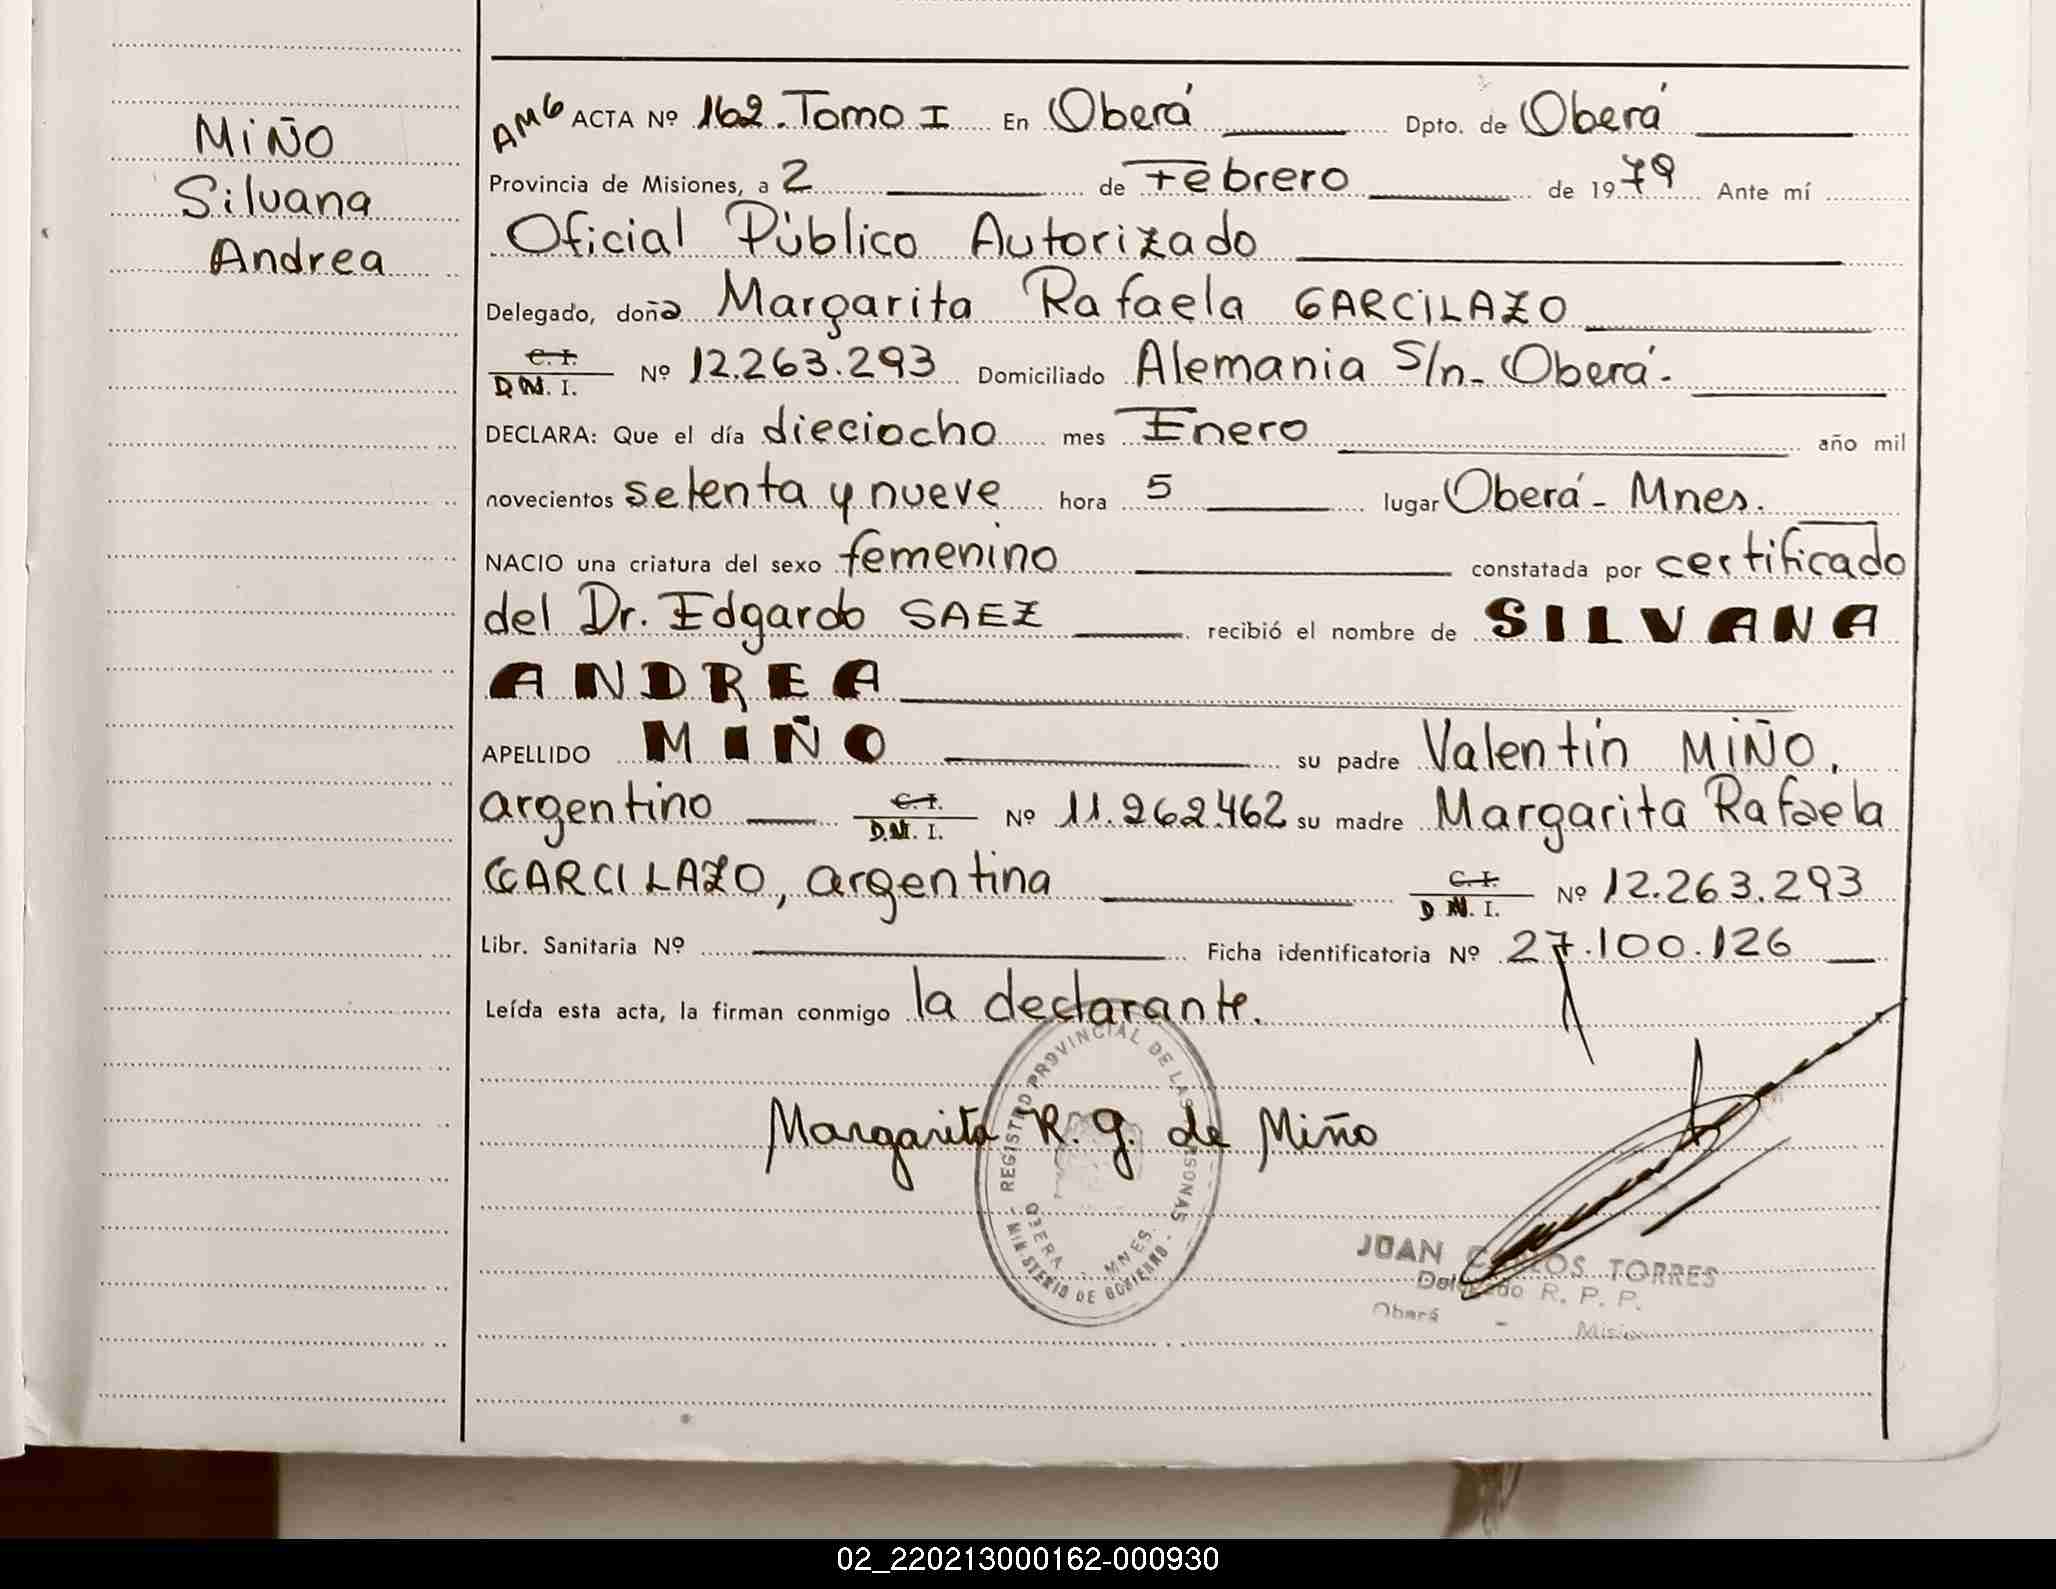 MIÑO
Silvana
Andrea
AMG ACTA Nº 162. Tomo I En Oberá Dpto. de Oberá
Provincia de Misiones, a 2 de Febrero de 1979 Ante mí
Oficial Público Autorizado
Delegado, doña Margarita Rafaela GARCILAZO
C. I. D.N.I. Nº 12.263.293 Domiciliado Alemania S/n - Oberá -
DECLARA: Que el día dieciocho mes Enero año mil
novecientos setenta y nueve hora 5 lugar Oberá - Mnes.
NACIO una criatura del sexo femenino constatada por certificado
del Dr. Edgardo SAEZ recibió el nombre de SILVANA
ANDREA
APELLIDO MIÑO su padre Valentín MIÑO,
argentino C. I. D.N.I. Nº 11.262.462 su madre Margarita Rafaela
GARCILAZO, argentina C. I. D.N.I. Nº 12.263.293
Libr. Sanitaria Nº Ficha identificatoria Nº 27.100.126
Leída esta acta, la firman conmigo la declarante.
Margarita R. G. de Miño
REGISTRO PROVINCIAL DE LAS PERSONAS
OBERA - MNES.
- MINISTERIO DE GOBIERNO -
JUAN CARLOS TORRES
Delegado R. P. P.
Oberá - Misiones
02_220213000162-000930